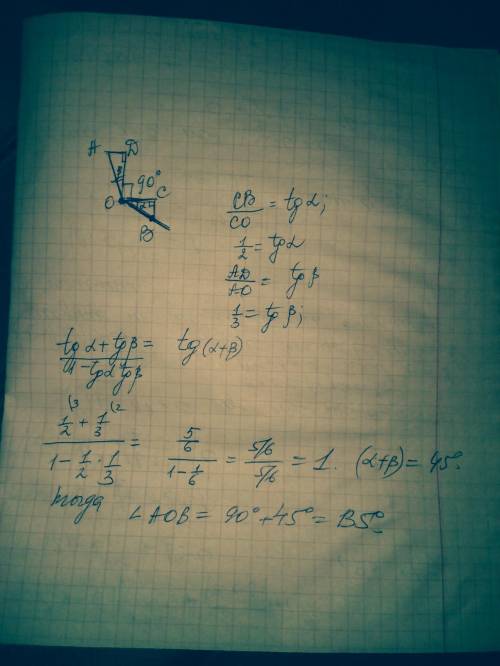 A D
90°
O C
B
CB/CO = tg α;
1/2 = tg α
AD/AO = tg β
1/3 = tg β;
(tg α + tg β)/(1 - tg α tg β) = tg (α+β)
(1/2 + 1/3)/(1 - 1/2 · 1/3) = (5/6)/(1 - 1/6) = (5/6)/(5/6) = 1. (α+β) = 45°
тогда
∠AOB = 90° + 45° = 135°